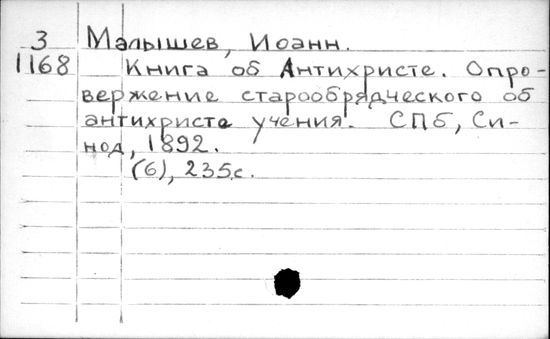 З Малышев, Иоанн.
1168 Книга об Антихристе. Опро-
вержение старообрядческого об
антихристе учения. СПб, Си-
нод, 1892.
(6), 235с.